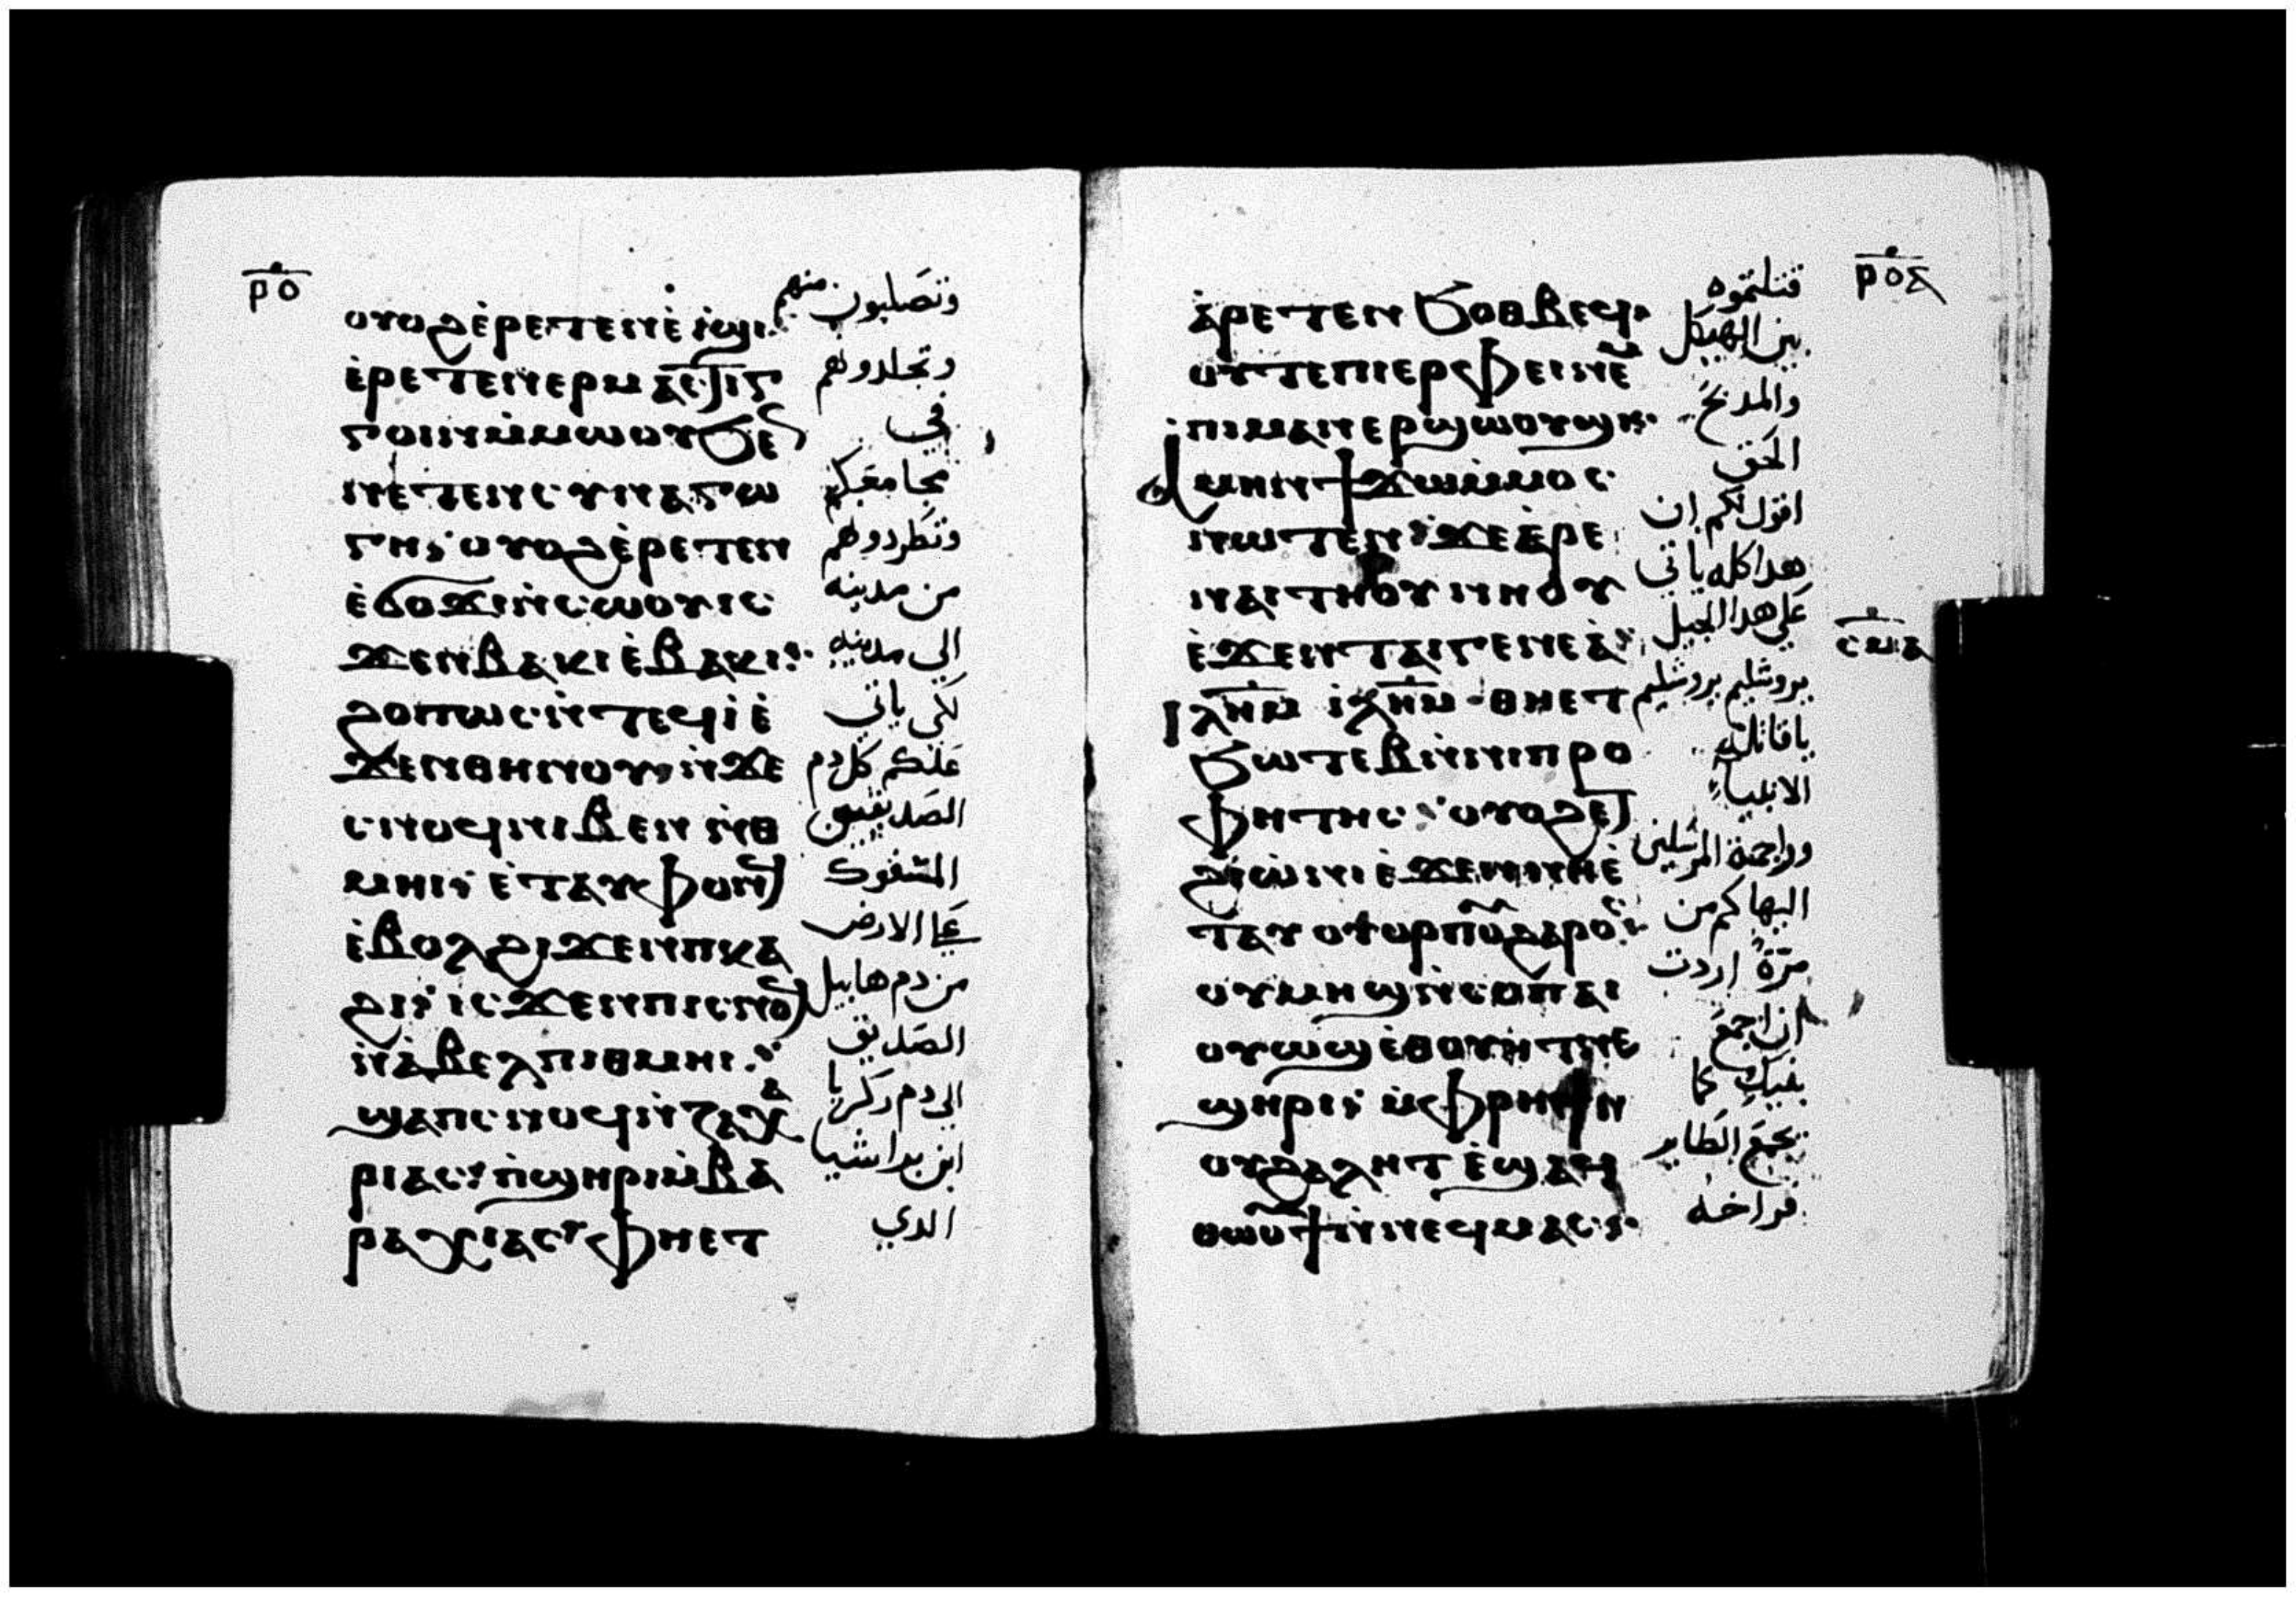 ⲣⲟ
ⲟⲩⲟϩ ⲉ̀ⲣⲉⲧⲉⲛⲉ̀ⲓϣⲓ
ⲉ̀ⲣⲉⲧⲉⲛⲉⲣⲙⲁⲥϯⲅ
ⲅⲟⲓⲛⲙ̀ⲙⲱⲟⲩϧⲉ
ⲛⲉⲧⲉⲛⲥⲩⲛⲁⲅⲱ
ⲅⲏ ⲟⲩⲟϩ ⲉ̀ⲣⲉⲧⲉⲛ
ⲉ̀ϭⲟϫⲓⲛ̀ⲥⲱⲟⲩⲓⲥ
ϫⲉⲛⲃⲁⲕⲓ ⲉ̀ⲃⲁⲕⲓ
ϩⲟⲡⲱⲥ ⲛ̀ⲧⲉϥⲓ̀ ⲉ̀
ϫⲉⲛⲑⲏⲛⲟⲩ ⲛ̀ϫⲉ
ⲥⲛⲟϥ ⲛⲓⲃⲉⲛ ⲛ̀ⲑ
ⲙⲏⲓ ⲉ̀ⲧⲁⲩⲫⲟⲛ
ⲉ̀ⲃⲟⲗ ϩⲓϫⲉⲛ ⲡⲕⲁ
ϩⲓ ⲓⲥϫⲉⲛ ⲡⲓⲥⲛⲟ
ⲛ̀ⲁ̀ⲃⲉⲗ ⲡⲓⲑⲙⲏⲓ
ϣⲁⲡⲥⲛⲟϥ ⲛ̀ⲍⲁⲭⲁ
ⲣⲓⲁⲥ ⲡ̀ϣⲏⲣⲓ ⲙ̀ⲃⲁ
ⲣⲁⲭⲓⲁⲥ ⲫⲏⲉⲧ
وتصلبون منهم
وتجلدوهم
في
مجامعكم
وتطردوهم
من مدينه
الي مدينه
لكي ياتي
عليكم كل دم
الصديقيين
المسفوك
علي الارض
من دم هابيل
الصديق
الي دم زكريا
ابن براشيا
الدي
ⲣⲟⲁ
ⲁ̀ⲣⲉⲧⲉⲛ ϧⲟⲑⲃⲉϥ
ⲟⲩⲧⲉⲡⲓⲉⲣⲫⲉⲓ ⲛⲉ
ⲡⲓⲙⲁⲛⲉⲣϣⲱⲟⲩϣⲓ
ⲁⲙⲏⲛ ϯϫⲱⲙ̀ⲙⲟⲥ
ⲛⲱⲧⲉⲛ ϫⲉ ⲁ̀ⲣⲉ
ⲛⲁⲓ ⲧⲏⲟⲩ ⲛⲏⲟⲩ
ⲉ̀ϫⲉⲛ ⲧⲁⲓⲅⲉⲛⲉⲁ̀
ⲓⲗⲏⲙ ⲓⲗⲏⲙ ⲑⲏⲉⲧ
ϧⲱⲧⲉⲃ ⲛ̀ⲛⲓⲡⲣⲟ
ⲫⲏⲧⲏⲥ ⲟⲩⲟϩ ⲉⲧ
ϩⲓⲱ̀ⲛⲓ ⲉ̀ϫⲉⲛ ⲛⲏⲉ̀
ⲧⲁⲩⲟⲩⲟⲣⲡⲟⲩ ϩⲁⲣⲟ
ⲟⲩⲙⲏϣ ⲛ̀ⲥⲟⲡ ⲁⲓ
ⲟⲩⲱϣ ⲉ̀ⲑⲟⲩⲉⲧ ⲛⲉ
ϣⲏⲣⲓ ⲙ̀ⲫⲣⲏϯ ⲛ
ⲟⲩϩⲁⲗⲏⲧ ⲉ̀ϣⲁϥ
ⲑⲱⲟⲩϯ ⲛ̀ⲛⲉϥⲙⲁⲥ
قتلتموه
بين الهيكل
والمدبح
الحق
اقول لكم ان
هدا كله ياتي
علي هدا الجيل
يروشليم يروشليم
ياقاتلة
الانبياء
وراجمة المرسلين
اليها كم من
مرة اردت
ان اجمع
بنيك كما
يجمع الطاير
فراخه
ⲥⲙⲁ